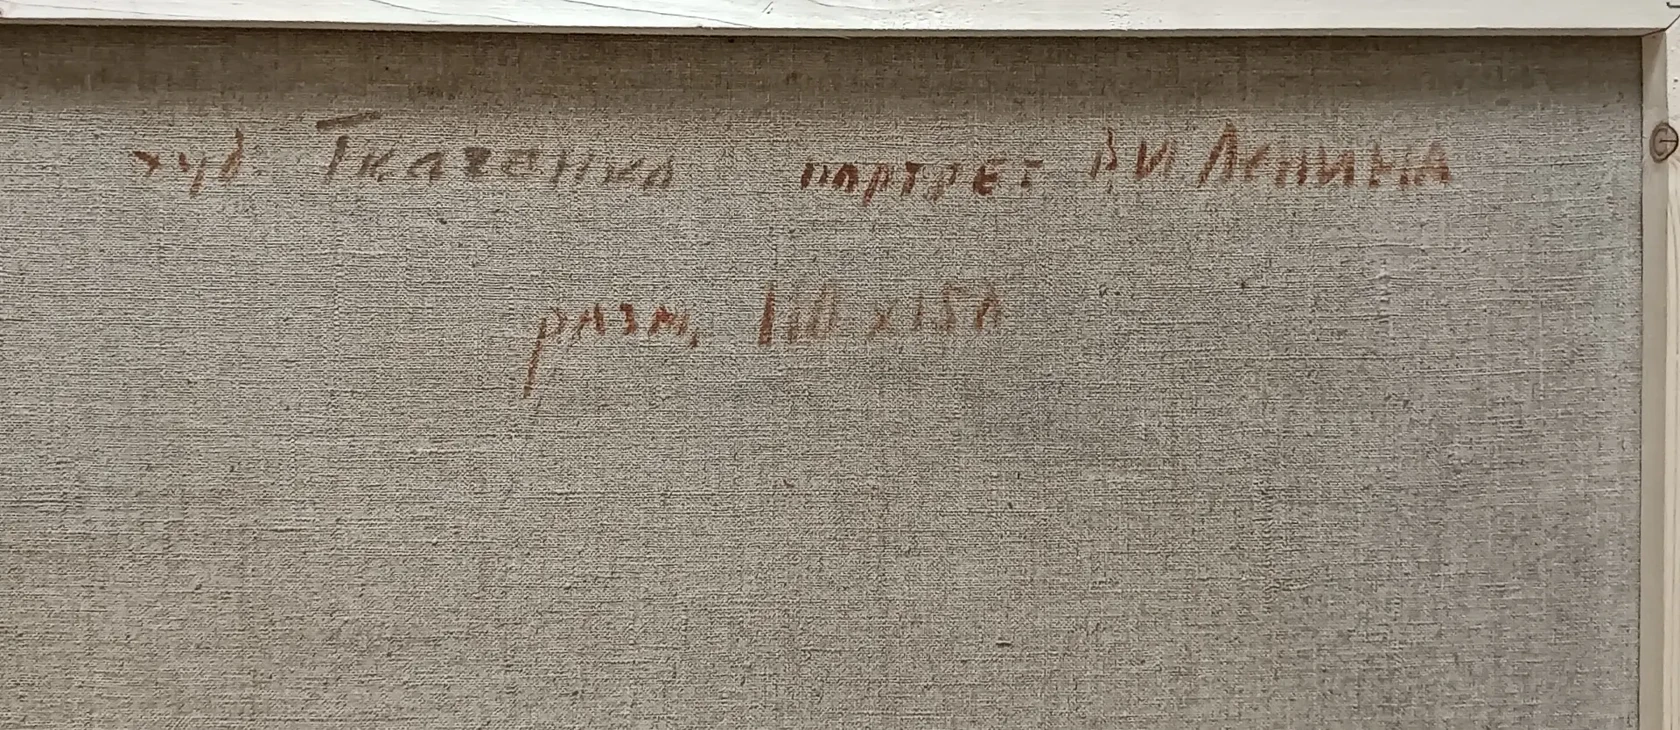 худ. Ткаченко портрет В И Ленина
разм. 110 х 150